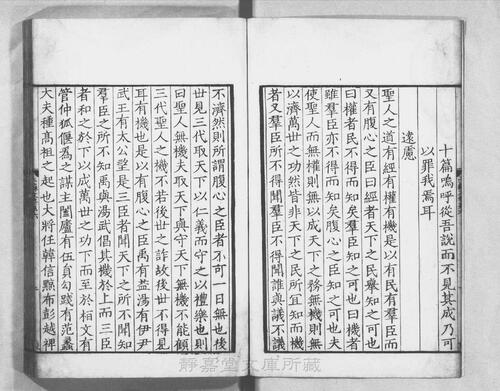 十篇嗚呼從吾說而不見其成乃可
以罪我焉耳
遠慮
聖人之道有經有權有機是以有民有羣臣而
又有腹心之臣曰經者天下之民舉知之可也
曰權者民不得而知矣羣臣知之可也曰機者
雖羣臣亦不得而知矣腹心之臣知之可也夫
使聖人而無權則無以成天下之務無機則無
以濟萬世之功然皆非天下之民所宜知而機
者又羣臣所不得聞羣臣不得聞誰與議不議
不濟然則所謂腹心之臣者不可一日無也後
世見三代取天下以仁義而守之以禮樂也則
曰聖人無機夫取天下與守天下無機不能顧
三代聖人之機不若後世之詐故後世不得見
耳有機也是以有腹心之臣禹有益湯有伊尹
武王有太公望是三臣者聞天下之所不聞知
羣臣之所不知禹與湯武倡其機於上而三臣
者和之於下以成萬世之功下而至於桓文有
管仲狐偃為之謀主闔廬有伍員勾踐有范蠡
大夫種高祖之起也大將任韓信黥布彭越裨
靜嘉堂文庫所藏